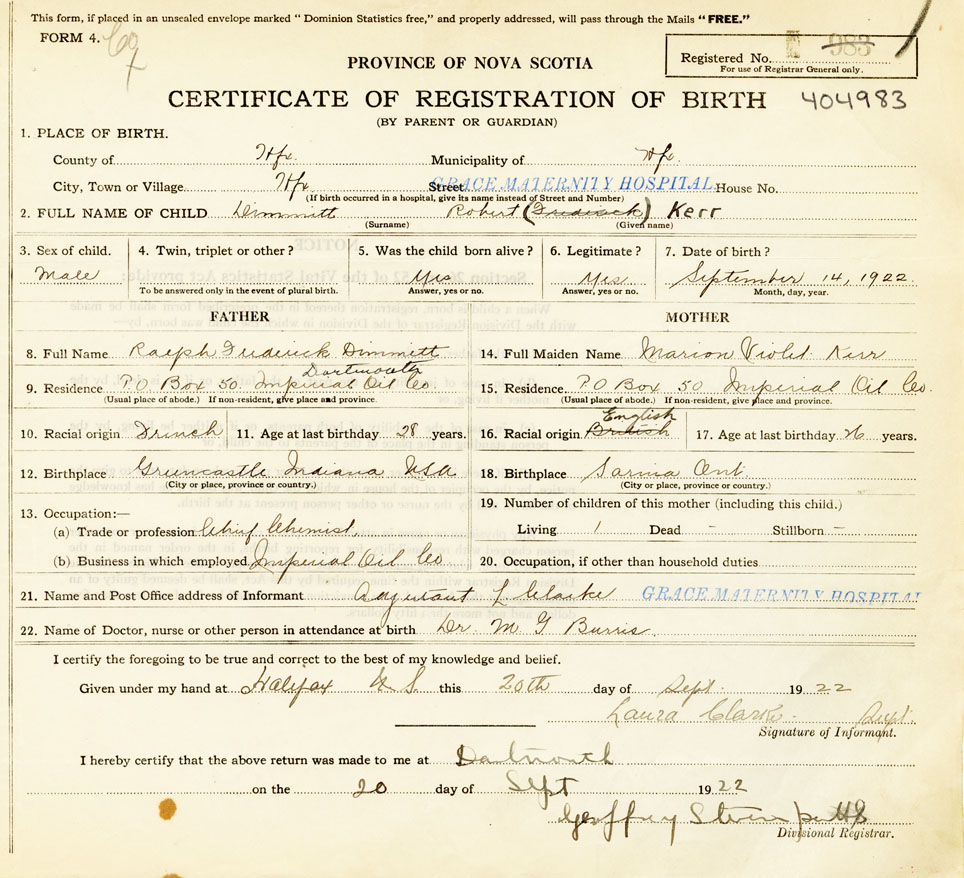 This form, if placed in an unsealed envelope marked "Dominion Statistics free," and properly addressed, will pass through the Mails "FREE."
FORM 4.
Registered No. 983
For use of Registrar General only.
PROVINCE OF NOVA SCOTIA
CERTIFICATE OF REGISTRATION OF BIRTH 404983
(BY PARENT OR GUARDIAN)
1. PLACE OF BIRTH.
County of Hfx. Municipality of Hfx.
City, Town or Village Hfx Street GRACE MATERNITY HOSPITAL. House No.
(If birth occurred in a hospital, give its name instead of Street and Number)
2. FULL NAME OF CHILD Dimmitt Robert (Fredrick) Kerr
(Surname) (Given name)
3. Sex of child. 4. Twin, triplet or other? 5. Was the child born alive? 6. Legitimate? 7. Date of birth?
Male Yes Yes September 14, 1922
To be answered only in the event of plural birth. Answer, yes or no. Answer, yes or no. Month, day, year.
FATHER MOTHER
8. Full Name Ralph Frederick Dimmitt 14. Full Maiden Name Marion Violet Kerr
Dartmouth
9. Residence P.O Box 50. Imperial Oil Co. 15. Residence P O Box 50 Imperial Oil Co.
(Usual place of abode.) If non-resident, give place and province. (Usual place of abode.) If non-resident, give place and province.
English
10. Racial origin French 11. Age at last birthday 28 years. 16. Racial origin British 17. Age at last birthday 26 years.
12. Birthplace Greencastle Indiana USA 18. Birthplace Sarnia Ont.
(City or place, province or country.) (City or place, province or country.)
19. Number of children of this mother (including this child.)
13. Occupation:—
(a) Trade or profession Chief Chemist, Living 1 Dead - Stillborn -
(b) Business in which employed Imperial Oil Co 20. Occupation, if other than household duties
21. Name and Post Office address of Informant Adjutant L Clarke GRACE MATERNITY HOSPITAL
22. Name of Doctor, nurse or other person in attendance at birth Dr. M G Burris.
I certify the foregoing to be true and correct to the best of my knowledge and belief.
Given under my hand at Halifax N S. this 20th day of Sept. 1922
Laura Clarke. Supt.
Signature of Informant.
I hereby certify that the above return was made to me at Dartmouth
on the 20 day of Sept 1922
Geoffrey Stevens
Divisional Registrar.